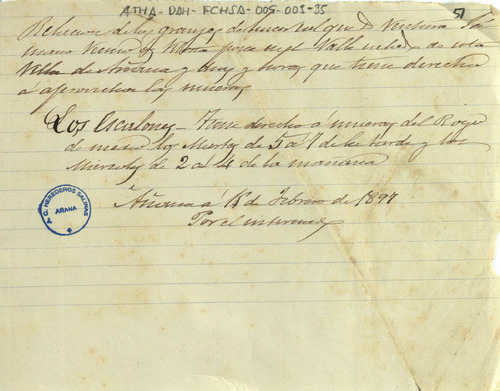 ATHA-DAH-FCHSA-005-003-35
51
Relacion de las granjas de hacer sal que D. Ventura
vecino de posee en el Valle salinas de esta
Villa de Añana y dias y horas que tiene derecho
á aprovechar las mueras
Los Escalones - Tiene derecho á mueras del Royo
de medio los Martes de 5 á 7 de la tarde y los
Miercoles de 2 á 4 de la mañana
Añana á 18 de Febrero de 1897
Por el interesado
C. HEREDEROS SALINAS
AÑANA